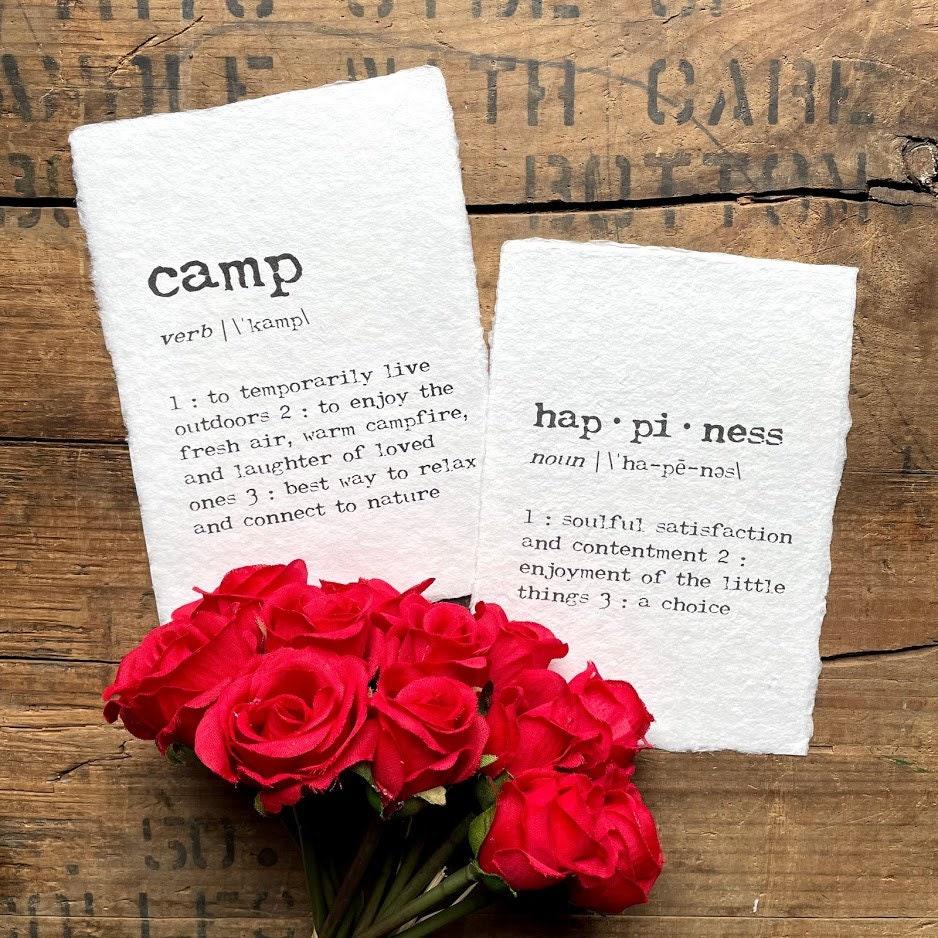 WITH CARE
BOTTOM
camp
verb | \ˈkamp\
1 : to temporarily live
outdoors 2 : to enjoy the
fresh air, warm campfire,
and laughter of loved
ones 3 : best way to relax
and connect to nature
hap · pi · ness
noun | \ˈha-pē-nəs\
1 : soulful satisfaction
and contentment 2 :
enjoyment of the little
things 3 : a choice
50.